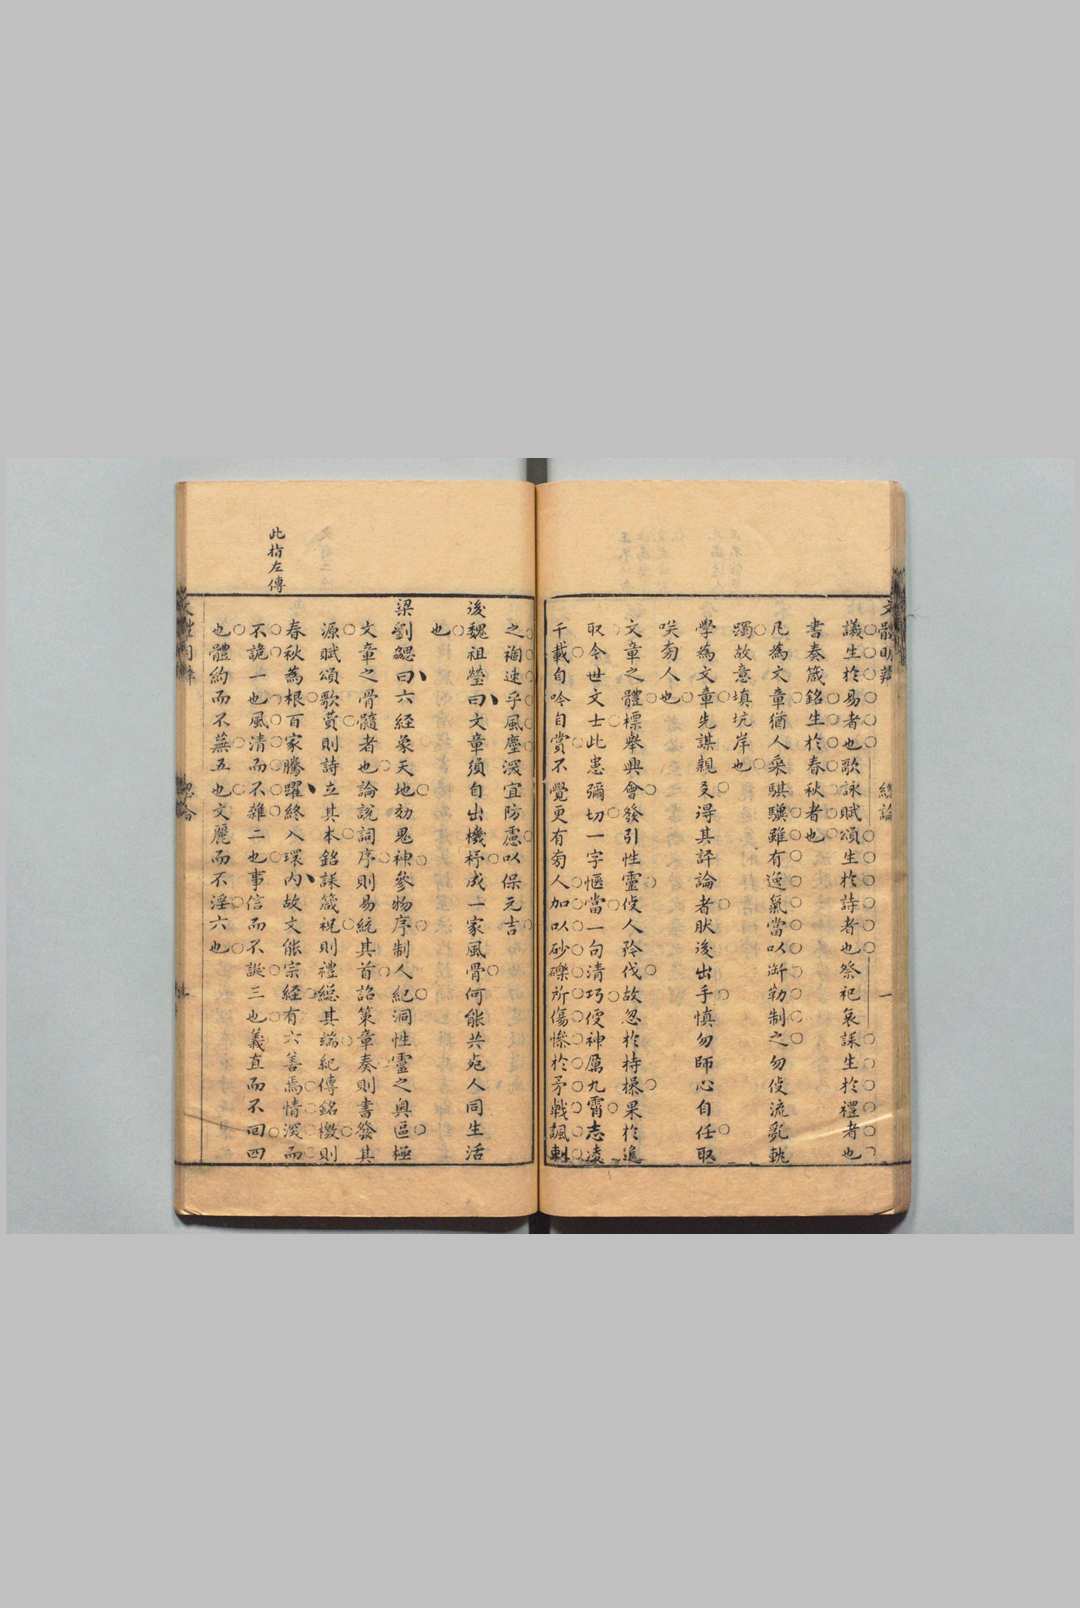 文體明辯
總論
一
議生於易者也歌詠賦頌生於詩者也祭祀哀誄生於禮者也
書奏箴銘生於春秋者也
凡為文章猶人乘騏驥雖有逸氣當以銜勒制之勿使流亂軌
躅放意填坑岸也
學為文章先謀親友得其評論者然後出手慎勿師心自任取
笑旁人也
文章之體標舉興會發引性靈使人矜伐故忽於持操果於進
取今世文士此患彌切一字愜當一句清巧使神厲九霄志凌
千載自吟自賞不覺更有旁人加以砂礫所傷慘於矛戟諷刺
之禍速乎風塵深宜防慮以保元吉
後魏祖瑩曰文章須自出機杼成一家風骨何能共兗人同生活
也
梁劉勰曰六經象天地効鬼神參物序制人紀洞性靈之奧區極
文章之骨髓者也論說詞序則易統其首詔策章奏則書發其
源賦頌歌贊則詩立其本銘誄箴祝則禮總其端紀傳銘檄則
春秋為根百家騰躍終入環內故文能宗經有六善焉情深而
不詭一也風清而不雜二也事信而不誕三也義直而不回四
也體約而不蕪五也文麗而不淫六也
此指左傳